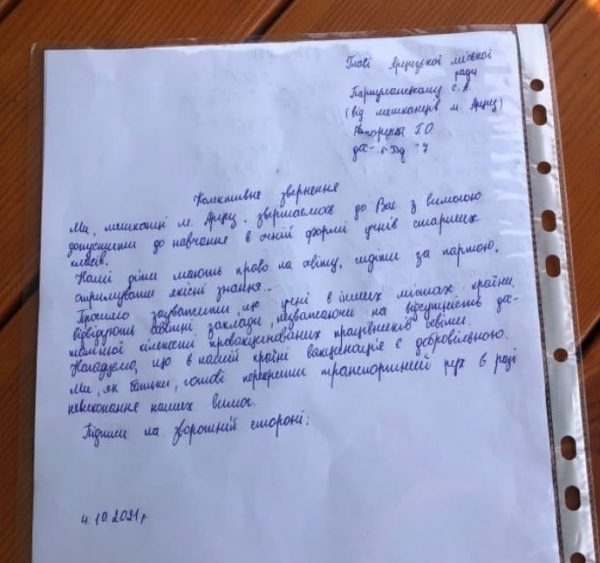 Голові Арцизької міської
ради
Парпуланському С. А.
(від мешканців м. Арциз)
ГО
Колективне звернення
Ми, мешканці м. Арциз, звертаємось до Вас з вимогою
допустити до навчання в очній формі учнів старших
класів.
Наші діти мають право на освіту, сидіти за партою,
отримувати якісні знання...
Просимо зауважити, що учні в інших містах країни
відвідують освітні заклади, незважаючи на відсутність дос-
татньої кількості провакцинованих працівників освіти.
Нагадуємо, що в нашій країні вакцинація є добровільною.
Ми, як батьки, готові перекрити транспортний рух в разі
невиконання наших вимог.
Підписи на зворотній стороні:
4.10.2021р